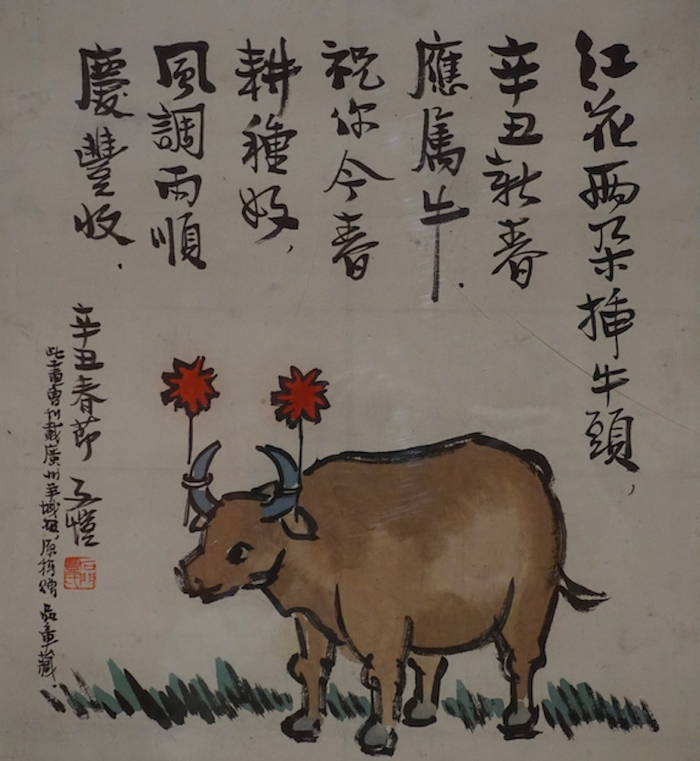 紅花兩朵插牛頭，
辛丑新春
應屬牛.
祝你今春
耕種好，
風調雨順
慶豐收.
辛丑春節 子愷
此畫曾刊載廣州羊城報，原稿贈